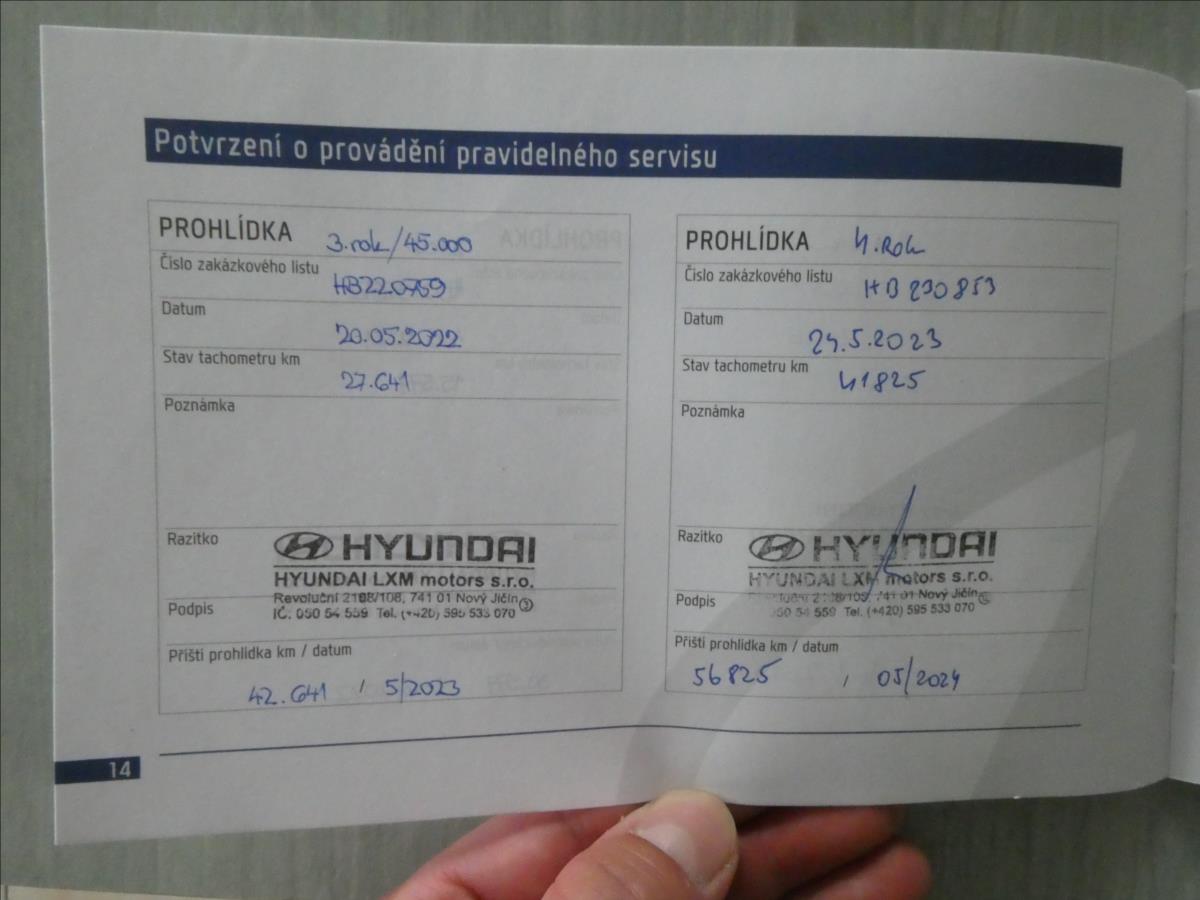 Potvrzení o provádění pravidelného servisu
PROHLÍDKA 3. rok/45.000
Číslo zakázkového listu HB220759
Datum 20.05.2022
Stav tachometru km 27.641
Poznámka
Razítko HYUNDAI
HYUNDAI LXM motors s.r.o.
Revoluční 2198/108, 741 01 Nový Jičín 3
Podpis IČ: 050 54 559 Tel. (+420) 595 533 070
Příští prohlídka km / datum
42.641 / 5/2023
PROHLÍDKA 4. Rok
Číslo zakázkového listu HB230853
Datum 24.5.2023
Stav tachometru km 41825
Poznámka
Razítko HYUNDAI
HYUNDAI LXM motors s.r.o.
741 01 Nový Jičín
Podpis 050 54 559 Tel. (+420) 595 533 070
Příští prohlídka km / datum
56825 / 05/2024
14